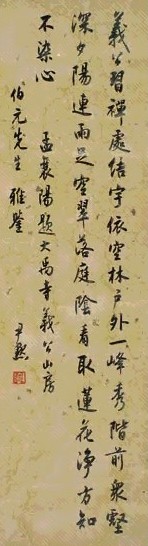 義公習禪處結宇依空林戶外一峰秀階前衆壑
深夕陽連雨足空翠落庭陰看取蓮花淨方知
不染心 孟襄陽題大禹寺義公山房
伯元先生雅鑒 尹默